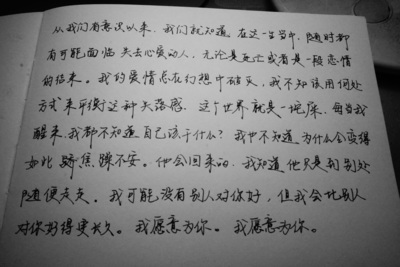 从我们有意识以来，我们就知道，在这一生当中，随时都
有可能面临失去心爱的人，无论是死亡或者是一段恋情
的结束。我的爱情总在幻想中破灭，我不知该用何处
方式来平衡这种失落感，这个世界就是一堆屎，每当我
醒来，我都不知道自己该干什么？我也不知道为什么会变得
如此骄焦躁不安。他会回来的，我知道他只是到别处
随便走走。我可能没有别人对你好，但我会比别人
对你好得更长久。我愿意为你。我愿意为你。